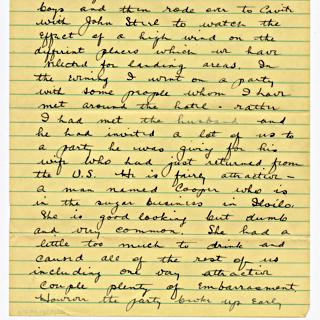 boys and then rode over to Cavite
with John Itul to watch the
effect of a high wind on the
different places which we have
selected for landing areas. In
the evening I went on a party
with some people whom I have
met around the hotel - rather
I had met the husband and
he had invited a lot of us to
a party he was giving for his
wife who had just returned from
the U.S. He is fairly attractive -
a man named Cooper who is
in the sugar business in Iloilo.
She is good looking but dumb
and very common. She had a
little too much to drink and
caused all of the rest of us
including one very attractive
couple plenty of embarrassment
However the party broke up early